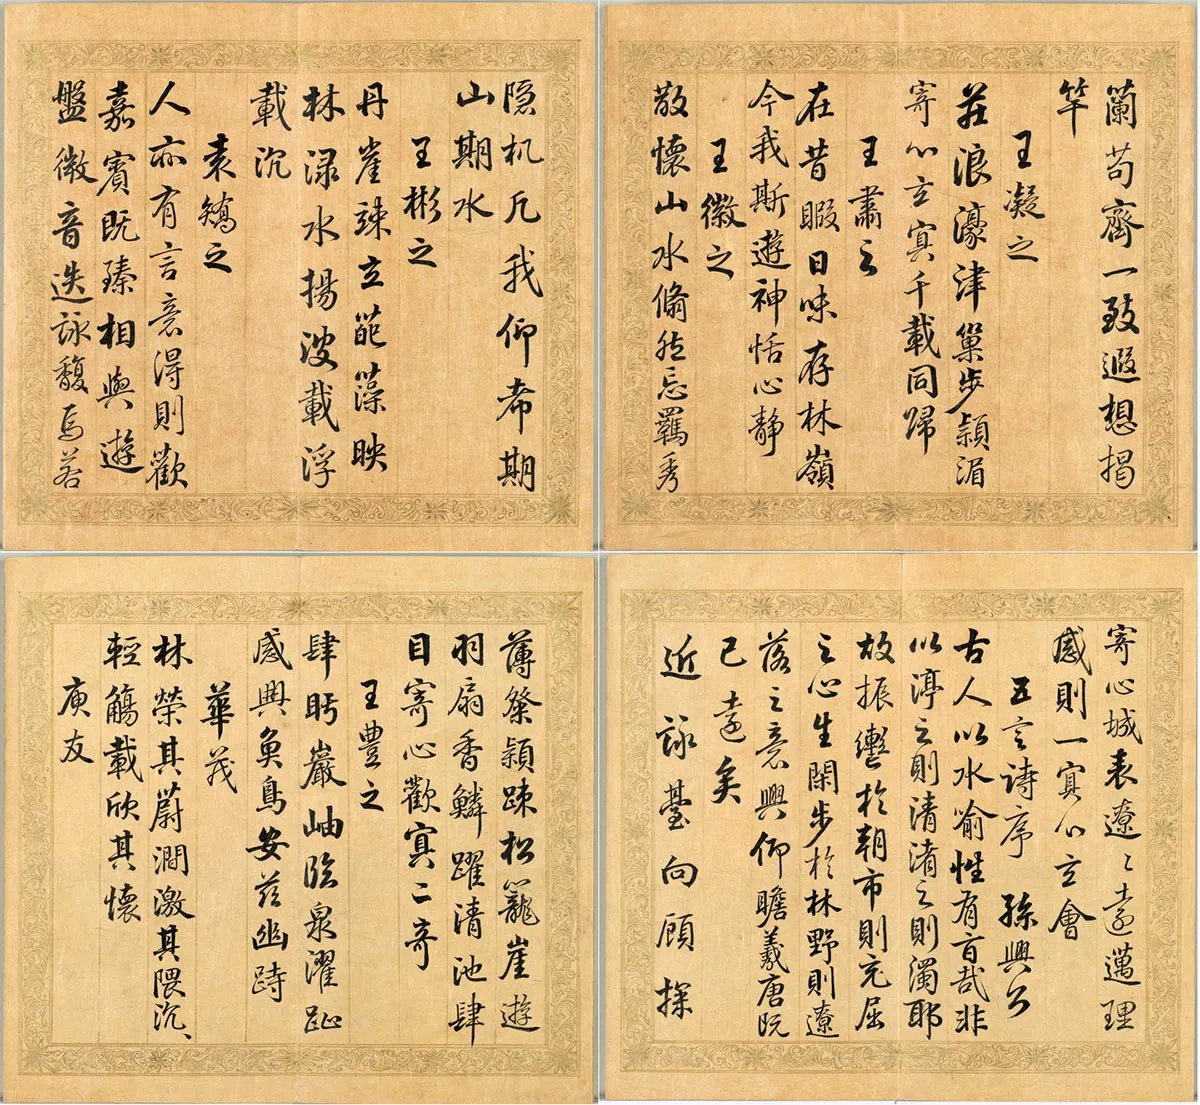 隱机凡我仰希期
山期水
王彬之
丹崖竦立葩藻映
林渌水揚波載浮
載沉
袁矯之
人亦有言意得則歡
嘉賓既臻相與遊
盤微音迭詠馥焉若
蘭苟齊一致遐想揭
竿
王凝之
莊浪濠津巢步潁湄
寄心玄冥千載同歸
王肅之
在昔暇日味存林嶺
今我斯遊神恬心靜
王徽之
散懷山水翛然忘羈秀
薄粲穎疎松籠崖遊
羽扇香鱗躍清池肆
目寄心歡冥二奇
王豊之
肆眄巖岫臨泉濯趾
感興魚鳥安茲幽跱
華茂
林榮其蔚澗激其隈沉〻
輕觴載欣其懷
庾友
寄心域表遼〻遠邁理
感則一冥心玄會
五言詩序 孫興公
古人以水喻性有旨哉非
以渟之則清淆之則濁耶
故振轡於朝市則充屈
之心生閑步於林野則遼
落之意興仰瞻羲唐既
已遠矣
近詠臺向顧探